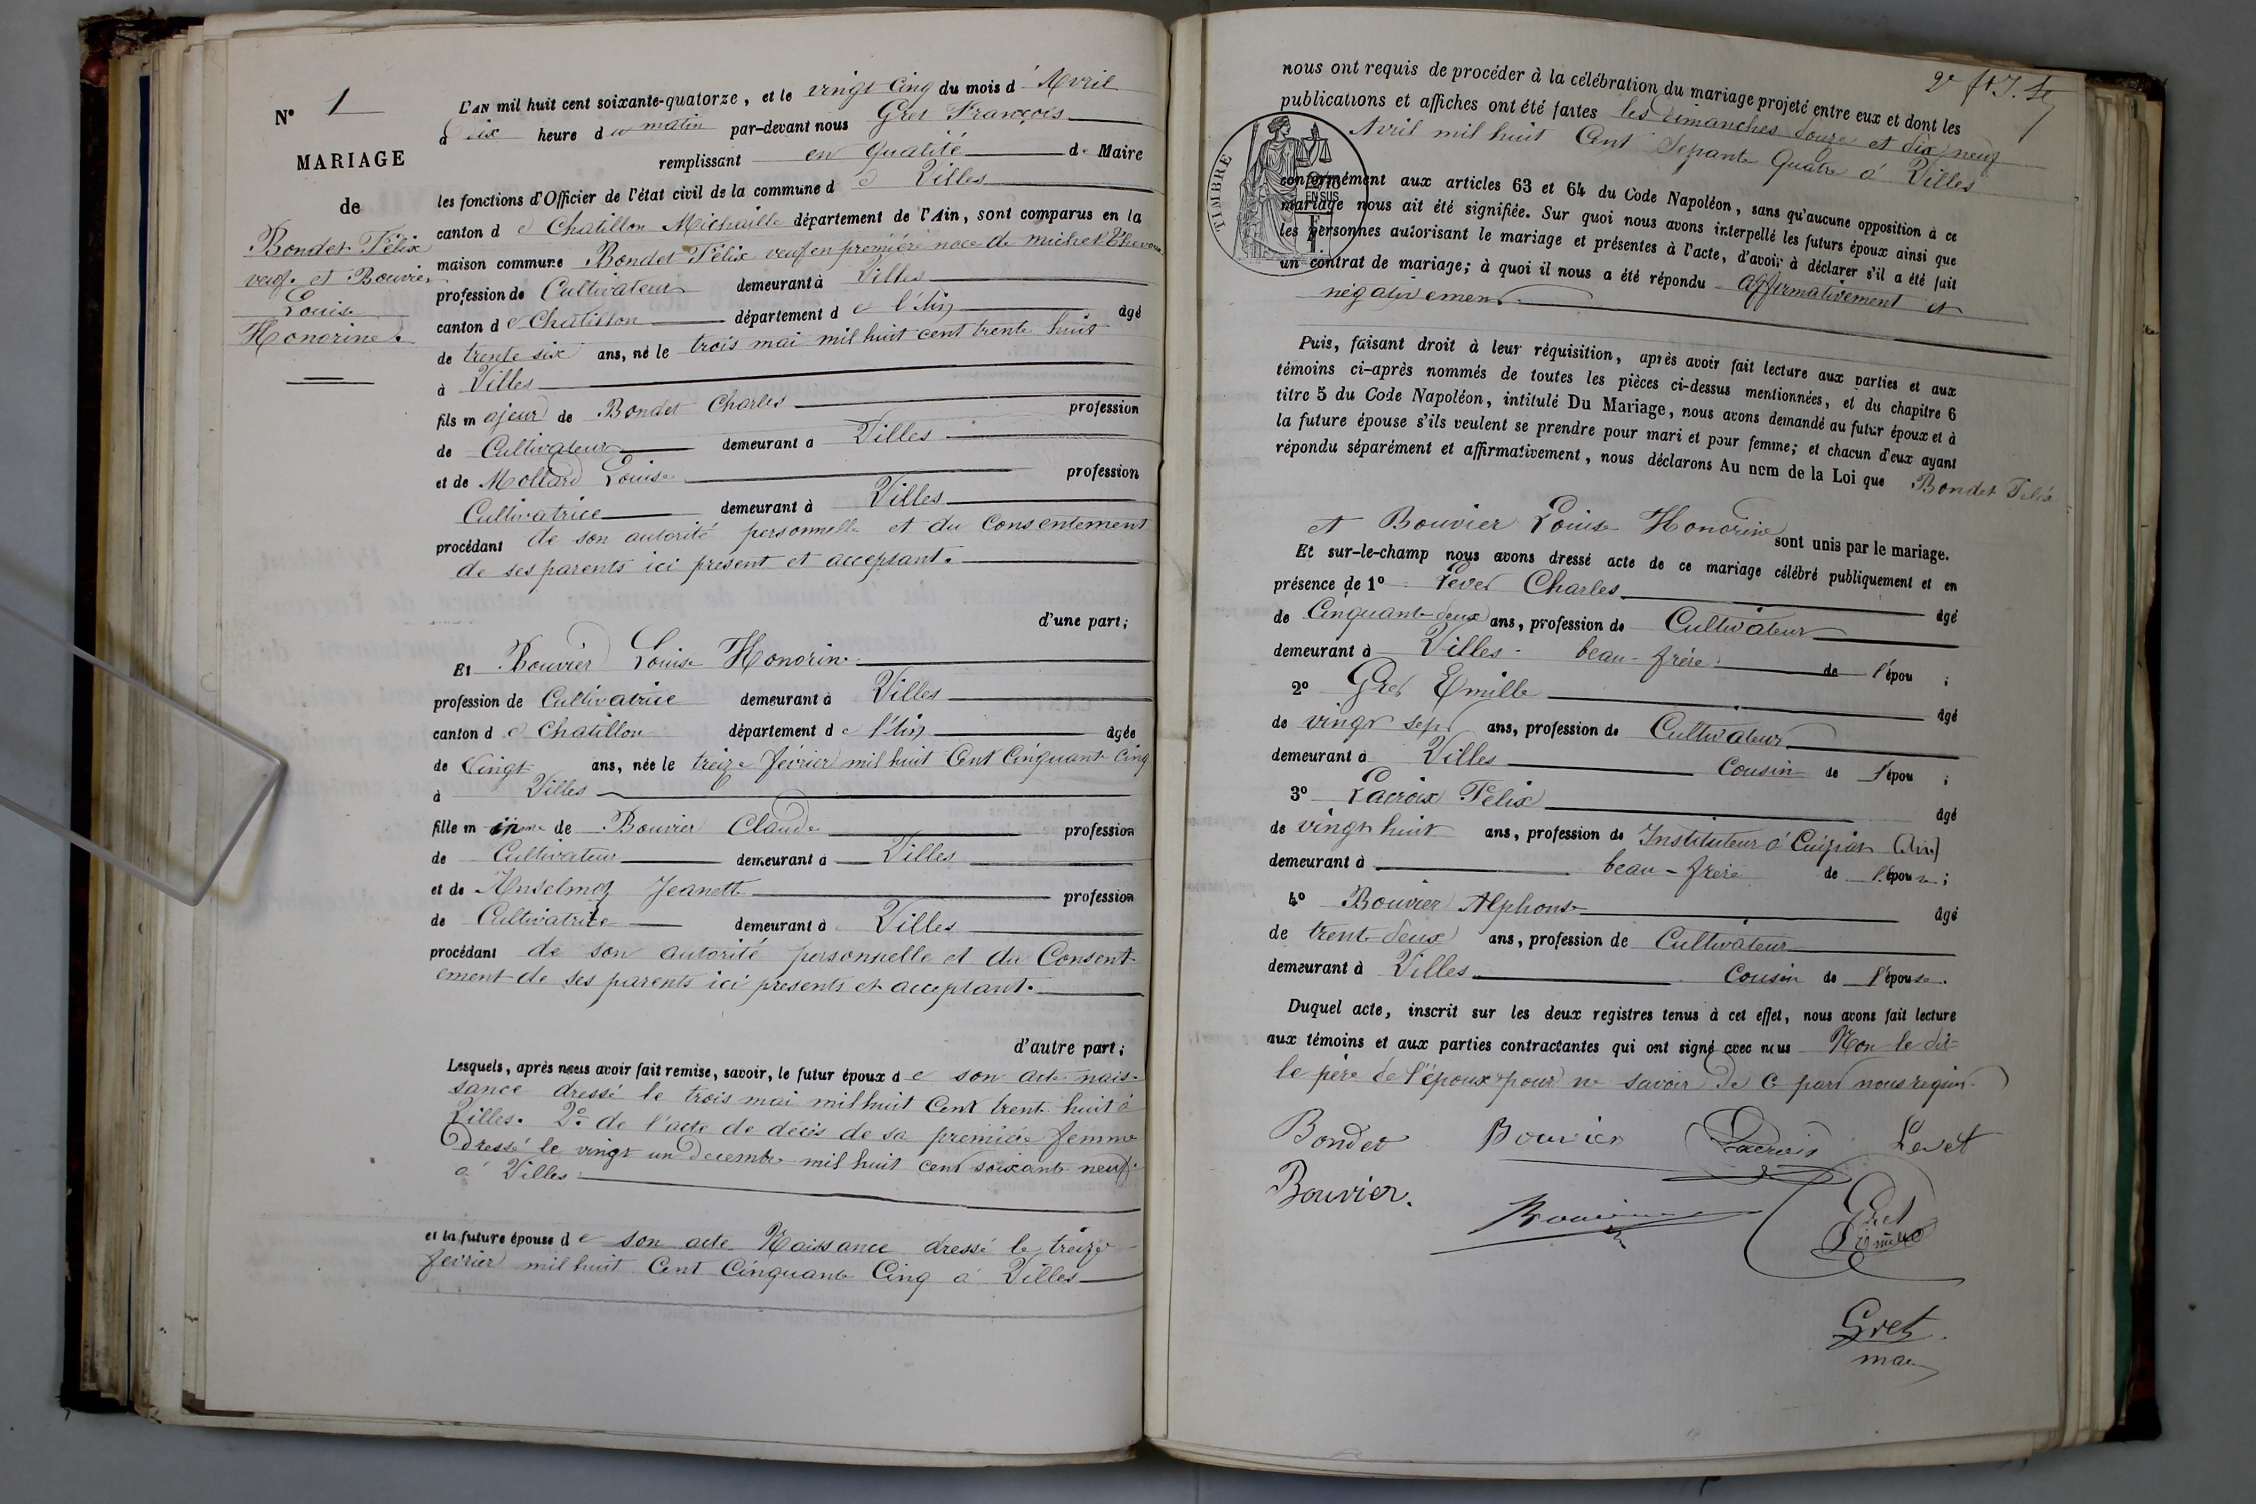 N° 1
MARIAGE
de
Bondet Félix
veuf. et Bouvier
Louise
Honorine.
L'AN mil huit cent soixante-quatorze, et le vingt Cinq du mois d'Avril
à dix heure du matin par-devant nous Gret François
remplissant en qualité de Maire
les fonctions d'Officier de l'état civil de la commune de Villes
canton de Chatillon Michaille département de l'Ain, sont comparus en la
maison commune Bondet Félix veuf en première noce de michel
profession de Cultivateur demeurant à Villes
canton de Châtillon département de l'Ain âgé
de trente six ans, né le trois mai mil huit cent trente huit
à Villes
fils majeur de Bondet Charles profession
de Cultivateur demeurant à Villes
et de Mollard Louise profession
Cultivatrice demeurant à Villes
procédant de son autorité personnelle et du Consentement
de ses parents ici présent et acceptant.
d'une part;
Et Bouvier Louise Honorine
profession de Cultivatrice demeurant à Villes
canton de Chatillon département de l'Ain âgée
de Vingt ans, née le treize février mil huit Cent Cinquante Cinq
à Villes
fille mineure de Bouvier Claude profession
de Cultivateur demeurant à Villes
et de Anselmoz Jeanette profession
de Cultivatrice demeurant à Villes
procédant de son autorité personnelle et du Consent-
ement de ses parents ici présents et acceptant.
d'autre part;
Lesquels, après nous avoir fait remise, savoir, le futur époux de son acte nais-
sance dressé le trois mai mil huit Cent trente huit à
Villes. 2° de l'acte de décès de sa première femme
dressé le vingt un decembre mil huit cent soixante neuf
à Villes
et la future épouse de son acte Naissance dressé le treize
février mil huit Cent Cinquante Cinq à Villes
nous ont requis de procéder à la célébration du mariage projeté entre eux et dont les
publications et affiches ont été faites les Dimanches douze et dix neuf
Avril mil huit Cent Septante Quatre à Villes
TIMBRE
2/10
EN SUS
conformément aux articles 63 et 64 du Code Napoléon, sans qu'aucune opposition à ce
mariage nous ait été signifiée. Sur quoi nous avons interpellé les futurs époux ainsi que
les personnes autorisant le mariage et présentes à l'acte, d'avoir à déclarer s'il a été fait
un contrat de mariage; à quoi il nous a été répondu affirmativement et
négativement
Puis, faisant droit à leur réquisition, après avoir fait lecture aux parties et aux
témoins ci-après nommés de toutes les pièces ci-dessus mentionnées, et du chapitre 6
titre 5 du Code Napoléon, intitulé Du Mariage, nous avons demandé au futur époux et à
la future épouse s'ils veulent se prendre pour mari et pour femme; et chacun d'eux ayant
répondu séparément et affirmativement, nous déclarons Au nom de la Loi que Bondet Félix
et Bouvier Louise Honorine sont unis par le mariage.
Et sur-le-champ nous avons dressé acte de ce mariage célébré publiquement et en
présence de 1° Levet Charles âgé
de Cinquante deux ans, profession de Cultivateur
demeurant à Villes beau-frère de l'épou ;
2° Gret Emille âgé
de vingt sept ans, profession de Cultivateur
demeurant à Villes Cousin de l'épou ;
3° Lacroix Félix âgé
de vingt huit ans, profession de Instituteur à (Ain)
demeurant à beau-frère de l'épouse;
4° Bouvier Alphonse âgé
de trente deux ans, profession de Cultivateur
demeurant à Villes Cousin de l'épouse.
Duquel acte, inscrit sur les deux registres tenus à cet effet, nous avons fait lecture
aux témoins et aux parties contractantes qui ont signé avec nous Non le dit
le père de l'époux pour ne savoir de ce par nous requis.
Bondet Bouvier Lacroix Levet
Bouvier.
Bouvier
Gret
Emille
Gret